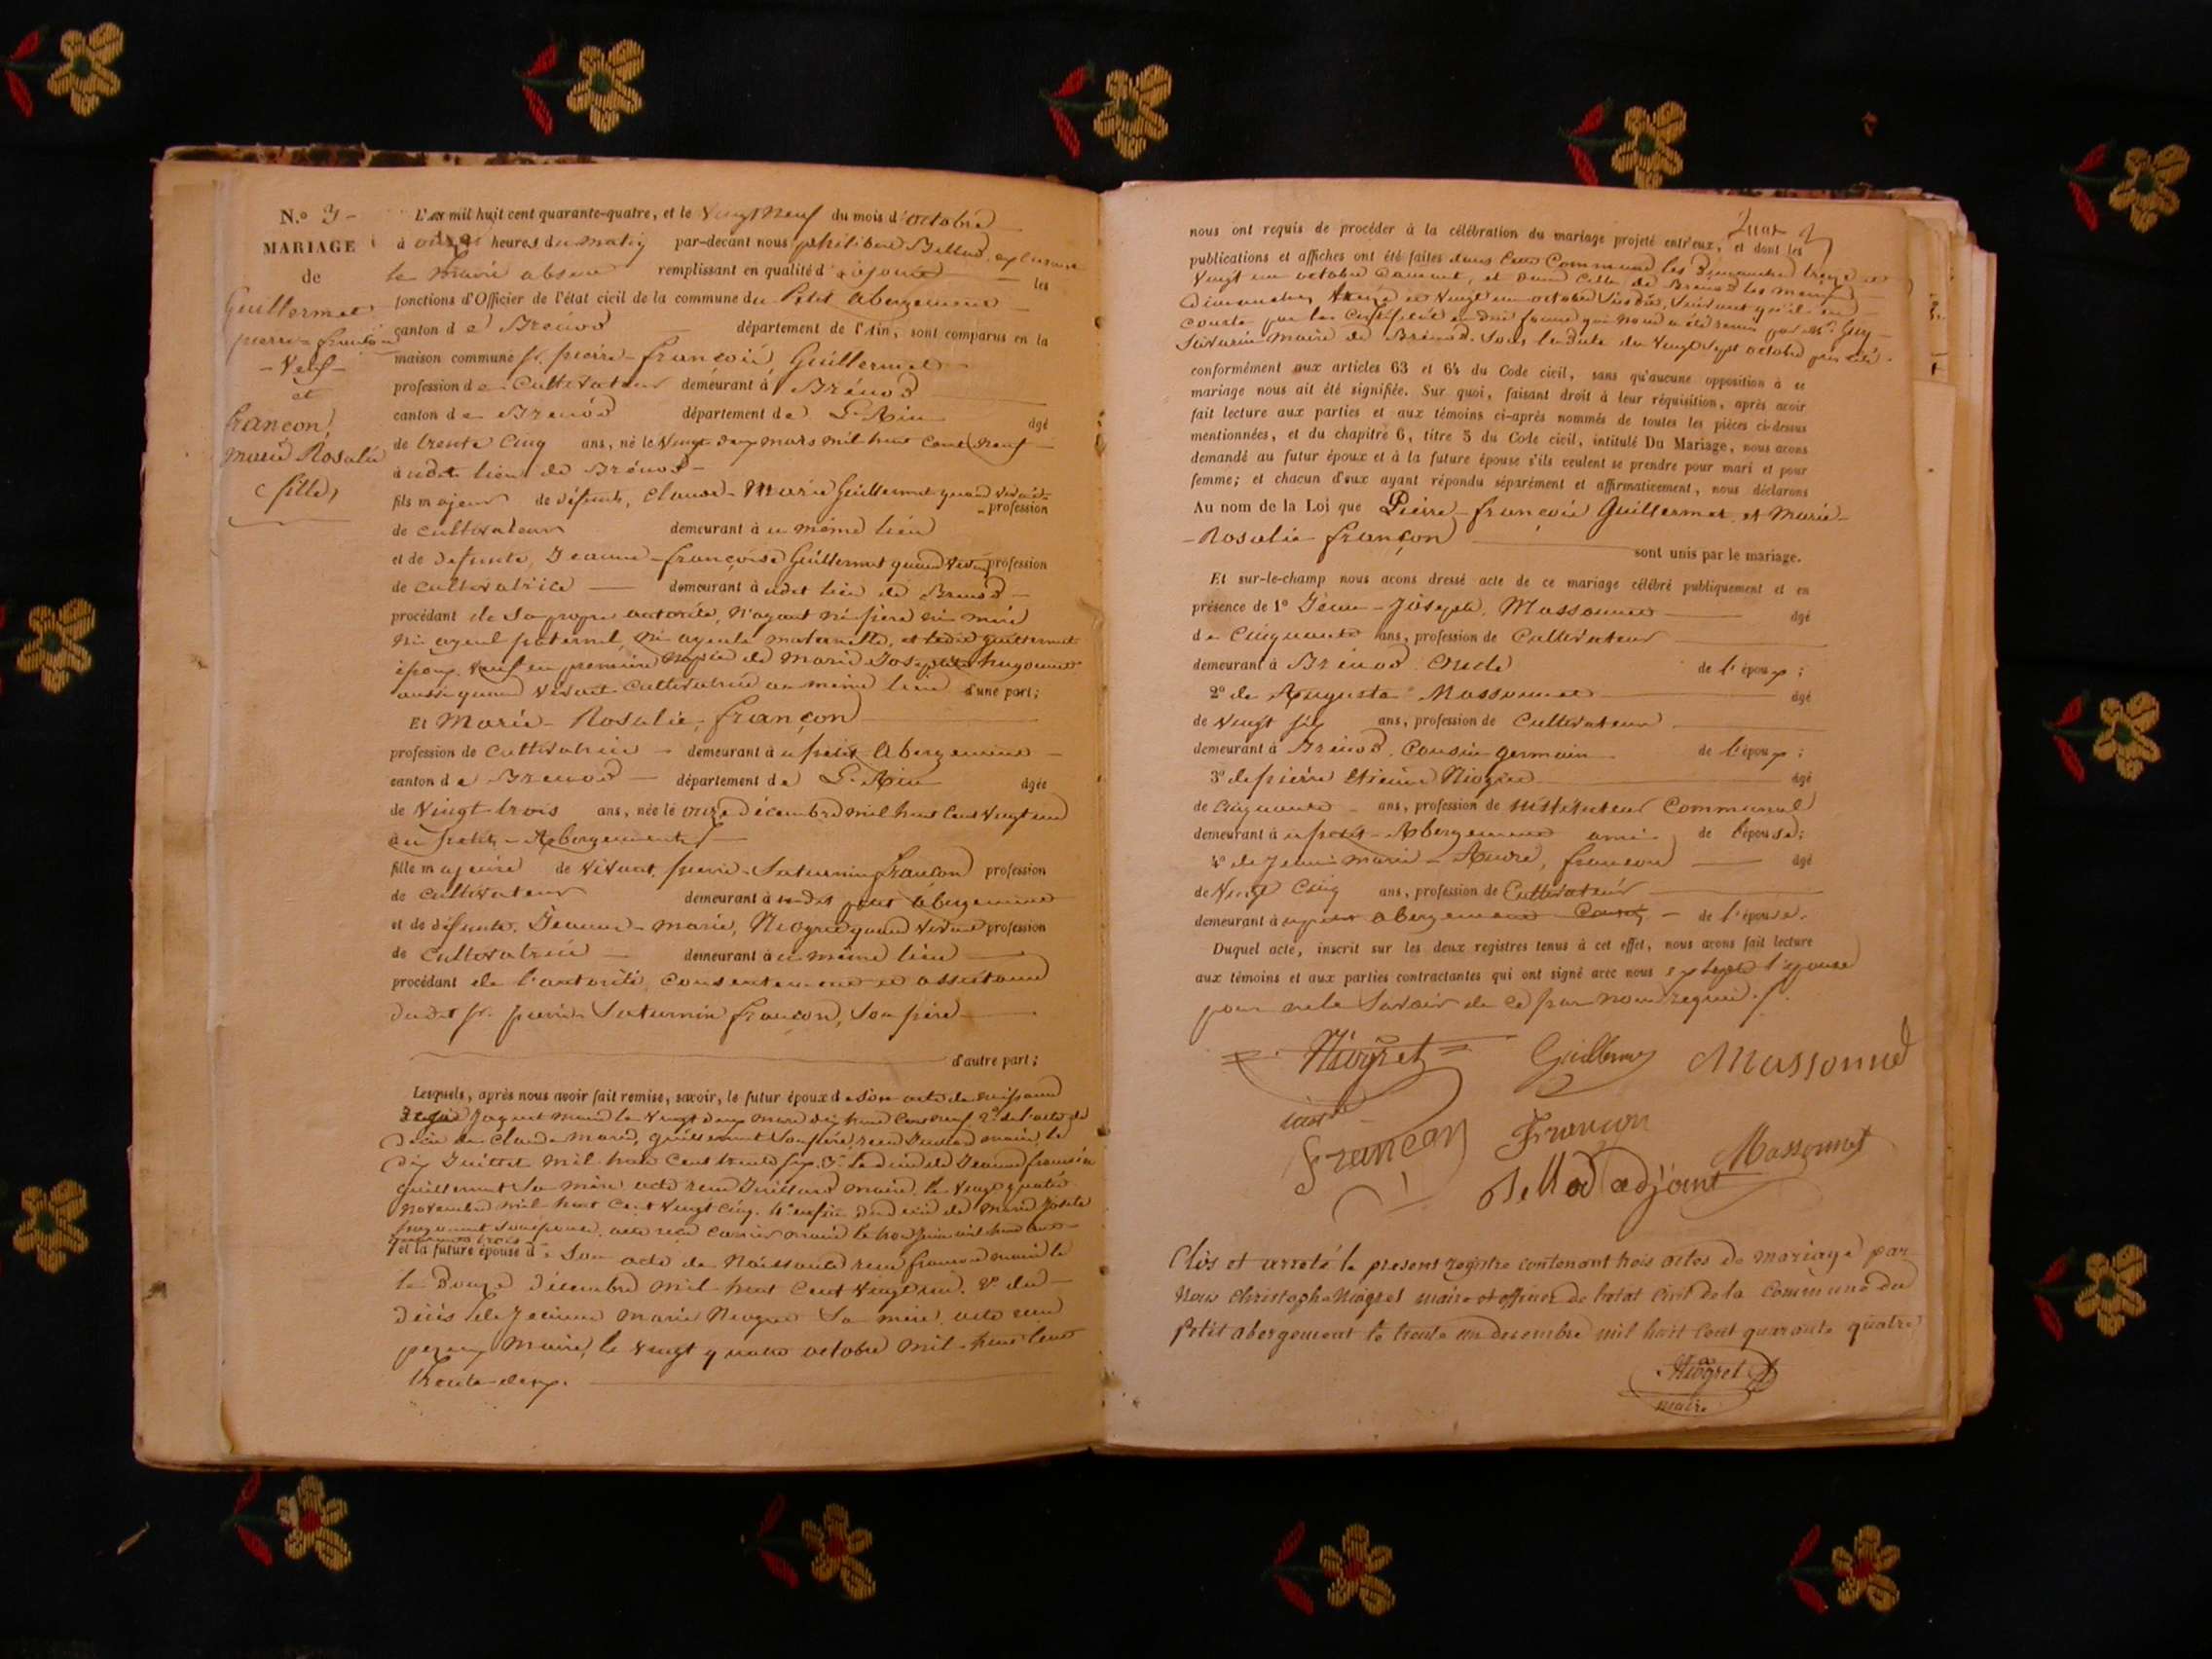 N.o 3 -
MARIAGE
de
Guillermet
pierre-françois
- Veuf -
et
francon,
marie Rosalie
(fille)
L'an mil huit cent quarante-quatre, et le Vingt Neuf du mois d'octobre
à onze heures du matin par-devant nous philibert Bellod,
le Maire absent remplissant en qualité d'adjoint les
fonctions d'Officier de l'état civil de la commune du Petit Abergement
canton de Brénod département de l'Ain, sont comparus en la
maison commune sr. pierre-françois, Guillermet
profession de Cultivateur demeurant à Brénod
canton de Brénod département de L'Ain âgé
de trente Cinq ans, né le Vingt deux mars mil huit Cent Neuf
audit lieu de Brénod -
fils majeur de défunts, Claude-Marie Guillermet quand vivait profession
de cultivateur demeurant au même lieu
et de défunte, Jeanne-françoise Guillermet quand vivait profession
de cultivatrice demeurant audit lieu de Brénod
procédant de sa propre autorité, N'ayant ni père ni mère
Ni ayeul paternel, Ni ayeule maternelle, et ledit guillermet
époux veuf en première Noces de Marie Josephte hugonnet
aussi quand vivait Cultivatrice au même lieu d'une part;
Et Marie-Rosalie, françon
profession de Cultivatrice demeurant au petit Abergement
canton de Brenod département de L'Ain âgée
de Vingt-trois ans, née le onze décembre mil huit Cent Vingt un
au petit-Abergement
fille majeure de vivant, pierre-Saturnin françon profession
de cultivateur demeurant audit petit abergement
et de défunte, Jeanne-marie, Niogret quand vivait profession
de Cultivatrice demeurant au même lieu
procédant de l'autorité, Consentement et assistance
dudit sr. pierre Saturnin françon, son père
d'autre part;
Lesquels, après nous avoir fait remise, savoir, le futur époux de son acte de naissance
Jaquet maire le vingt deux mars dix huit Cent neuf, 2o. de l'acte de
décès de Claude Marie, guillermet son père, maire, le
dix Juillet mil huit Cent trente six. 3o. de Jeanne françoise
guillermet sa mère acte reçu Juillard maire, le vingt quatre
Novembre mil huit Cent Vingt Cinq. 4o. enfin de marie Joste
hugonnet son épouse, acte reçu maire le
quarante trois
et la future épouse de Son acte de Naissance reçu françon maire le
le Douze Décembre mil huit Cent Vingt un. 2o. du
décès de Jeanne Marie Niogret Sa mère, acte reçu
maire, le vingt quatre octobre mil huit Cent
trente-deux.
nous ont requis de procéder à la célébration du mariage projeté entr'eux, et dont les
publications et affiches ont été faites dans Cette Commune les Dimanches treize et
Vingt un octobre Courant, et dans Celle de Brenod les mêmes
dimanches treize et Vingt un octobre susdit, suivant qu'il en
conste par le Certificat en due forme qui nous a été remis par Mr. Guy
Savarin Maire de Brénod. Sous la date du Vingt Sept octobre
conformément aux articles 63 et 64 du Code civil, sans qu'aucune opposition à ce
mariage nous ait été signifiée. Sur quoi, faisant droit à leur réquisition, après avoir
fait lecture aux parties et aux témoins ci-après nommés de toutes les pièces ci-dessus
mentionnées, et du chapitre 6, titre 5 du Code civil, intitulé Du Mariage, nous avons
demandé au futur époux et à la future épouse s'ils veulent se prendre pour mari et pour
femme; et chacun d'eux ayant répondu séparément et affirmativement, nous déclarons
Au nom de la Loi que Pierre-françois Guillermet et Marie-
-Rosalie françon
sont unis par le mariage.
Et sur-le-champ nous avons dressé acte de ce mariage célébré publiquement et en
présence de 1o Jean-Joseph, Massonnet âgé
de Cinquante ans, profession de Cultivateur
demeurant à Brénod Oncle de l'époux;
2o de Auguste Massonnet âgé
de Vingt six ans, profession de Cultivateur
demeurant à Brénod, Cousin germain de l'époux;
3o de pierre Etienne Niogret âgé
de Cinquante ans, profession de instituteur Communal
demeurant au petit-Abergement ami de l'épouse;
4o de Jean marie-André, françon âgé
de Vingt Cinq ans, profession de Cultivateur
demeurant au petit abergement Cousin de l'épouse.
Duquel acte, inscrit sur les deux registres tenus à cet effet, nous avons fait lecture
aux témoins et aux parties contractantes qui ont signé avec nous excepté l'épouse
pour ne le Savoir de ce par nous requis.
Niogret Guillermet Massonnet
francon Francon
Massonnet
Bellod adjoint
Clos et arreté le present registre contenant trois actes de mariage par
Nous Christophe Niogret maire et officier de l'etat civil de la commune du
Petit abergement le trente un decembre mil huit cent quarante quatre
Niogret
maire